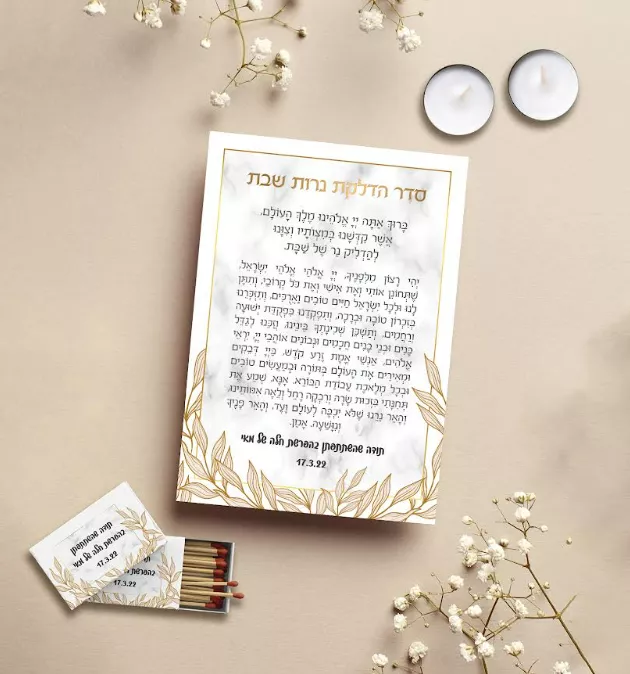 סדר הדלקת נרות שבת
בָּרוּךְ אַתָּה יְיָ אֱלֹהֵינוּ מֶלֶךְ הָעוֹלָם,
אֲשֶׁר קִדְּשָׁנוּ בְּמִצְוֹתָיו וְצִוָּנוּ
לְהַדְלִיק נֵר שֶׁל שַׁבָּת.
יְהִי רָצוֹן מִלְּפָנֶיךָ, יְיָ אֱלֹהַי אֱלֹהֵי יִשְׂרָאֵל,
שֶׁתְּחוֹנֵן אוֹתִי וְאֶת אִישִׁי וְאֶת כׇּל קְרוֹבַי, וְתִתֵּן
לָנוּ וּלְכׇל יִשְׂרָאֵל חַיִּים טוֹבִים וַאֲרֻכִּים, וְתִזְכְּרֵנוּ
בְּזִכְרוֹן טוֹבָה וּבְרָכָה, וְתִפְקְדֵנוּ בִּפְקֻדַּת יְשׁוּעָה
וְרַחֲמִים, וְתַשְׁכֵּן שְׁכִינָתְךָ בֵּינֵינוּ, וְזַכֵּנוּ לְגַדֵּל
בָּנִים וּבְנֵי בָנִים חֲכָמִים וּנְבוֹנִים אוֹהֲבֵי יְיָ יִרְאֵי
אֱלֹהִים, אַנְשֵׁי אֱמֶת זֶרַע קֹדֶשׁ, בַּיְיָ דְּבֵקִים
וּמְאִירִים אֶת הָעוֹלָם בְּתוֹרָה וּבְמַעֲשִׂים טוֹבִים
וּבְכׇל מְלֶאכֶת עֲבוֹדַת הַבּוֹרֵא. אָנָּא, שְׁמַע אֶת
תְּחִנָּתִי בִּזְכוּת שָׂרָה וְרִבְקָה רָחֵל וְלֵאָה אִמּוֹתֵינוּ,
וְהָאֵר נֵרֵנוּ שֶׁלֹּא יִכְבֶּה לְעוֹלָם וָעֶד, וְהָאֵר פָּנֶיךָ
וְנִוָּשֵׁעָה, אָמֵן.
תודה שהשתתפתן בהפרשת חלה של מאי
17.3.22
תודה שהשתתפתן
בהפרשת חלה של מאי
17.3.22
בהפרשת חלה של
17.3.22